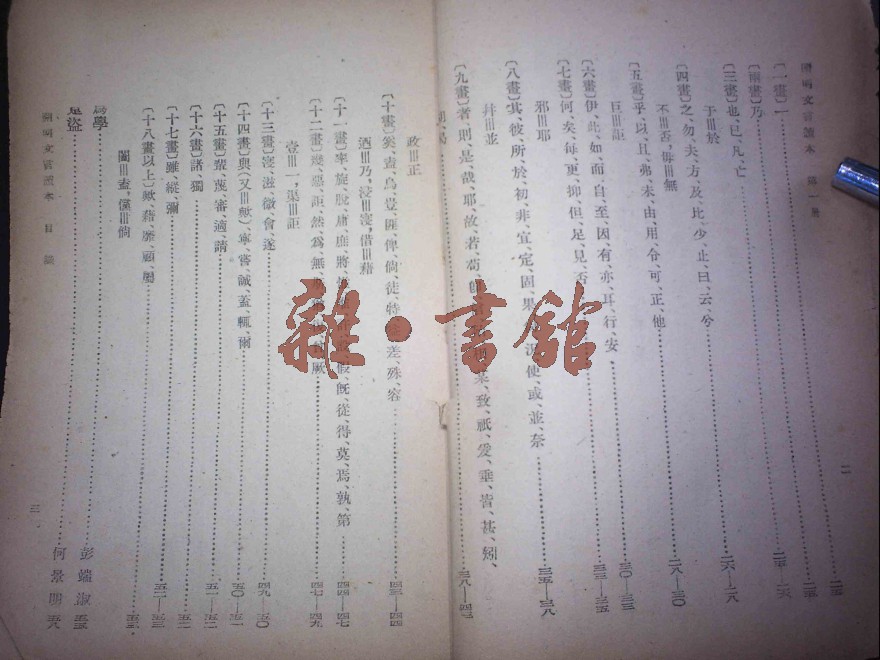 開明文言讀本 第一册
〔一畫〕一 二五
〔兩畫〕乃 二五—二六
〔三畫〕也、已、凡、亡 二六—二八
于＝於
〔四畫〕之、勿、夫、方、及、比、少、止、曰、云、兮 二八—三〇
不＝否，毋＝無
〔五畫〕乎、以、且、弗、未、由、用、令、可、正、他 三〇—三三
巨＝詎
〔六畫〕伊、此、如、而、自、至、因、有、亦、耳、行、安 三三—三五
〔七畫〕何、矣、每、更、抑、但、足、見、否 三五
邪＝耶
〔八畫〕其、彼、所、於、初、非、宜、定、固、果 使、或、並、奈 三五—三八
幷＝並
〔九畫〕者、則、是、哉、耶、故、若、苟 某、致、祇、爰、垂、皆、甚、矧、 三八—四三
二
政＝正
〔十畫〕奚、盍、烏、豈、匪、俾、倘、徒、特 差、殊、容 四三—四四
迺＝乃，浸＝寖，借＝藉
〔十一畫〕率、旋、脫、庸、庶、將 假、旣、從、得、莫、焉、孰、第 四四—四七
〔十二畫〕幾、惡、詎、然、爲、無 厥 四七—四九
壹＝一，渠＝詎
〔十三畫〕寖、滋、微、會、遂 四九—五〇
〔十四畫〕與（又＝歟）、寧、嘗、誠、蓋、輒、爾 五〇—五一
〔十五畫〕衆、蔑、審、適、請 五一—五二
〔十六畫〕諸、獨 五二
〔十七畫〕雖、縱、彌 五二
〔十八畫以上〕歟、藉、靡、顧、屬 五二—五三
闔＝盍，儻＝倘 五三
爲學 彭端淑 五五
是盜 何景明 五八
開明文言讀本 目錄
三
雜·書館